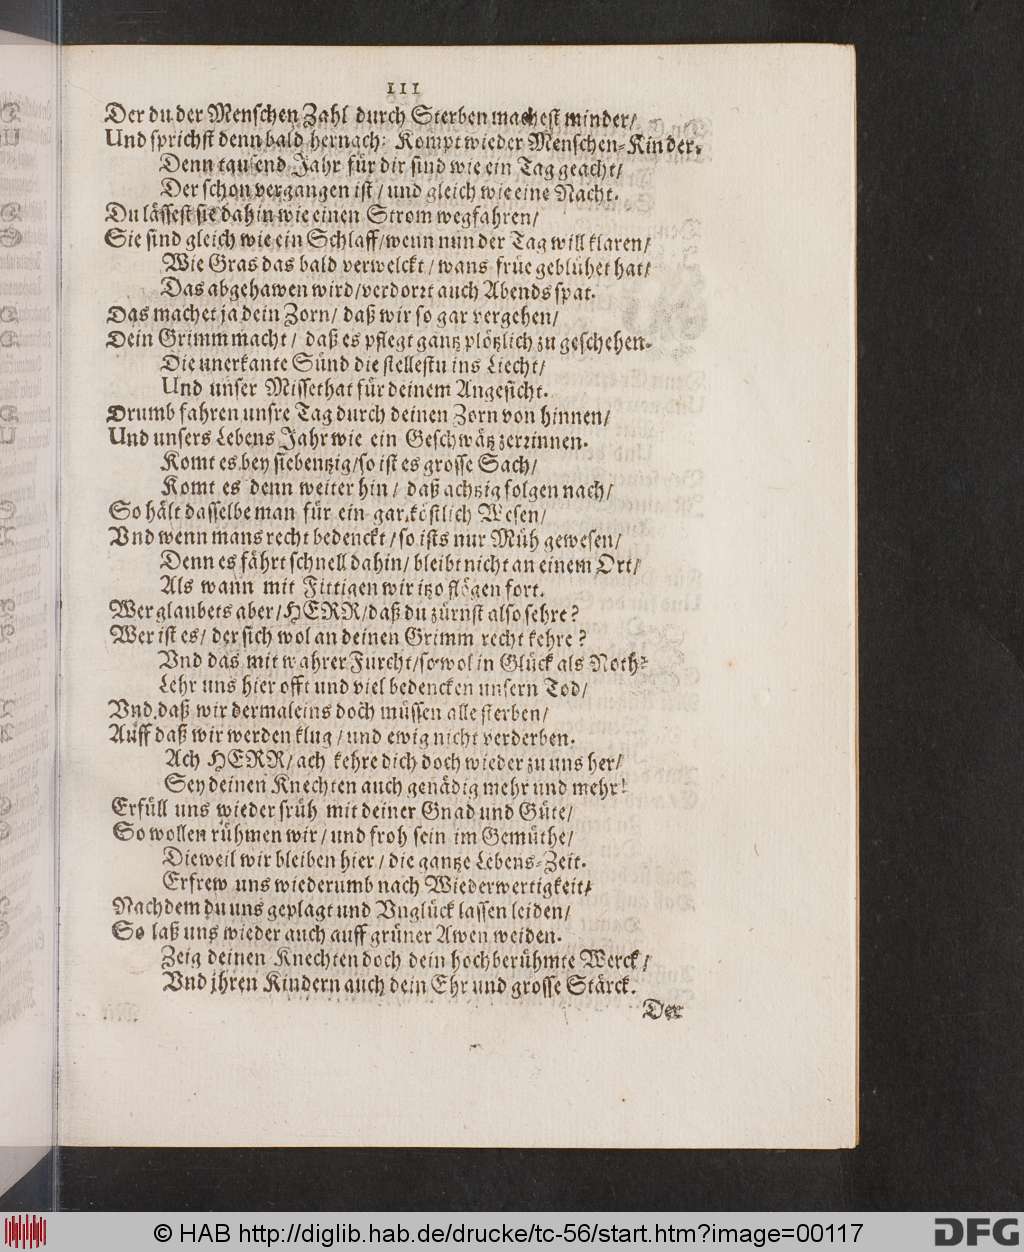 111
Der du der Menſchen Zahl durch Sterben macheſt minder/
Und ſprichſt denn bald hernach: Kompt wieder Menſchen-Kinder.
Denn tauſend Jahr für dir ſind wie ein Tag geacht/
Der ſchon vergangen iſt / und gleich wie eine Nacht.
Du läſſeſt ſie dahin wie einen Strom wegfahren/
Sie ſind gleich wie ein Schlaff/wenn nun der Tag will klaren/
Wie Gras das bald verwelckt / wans früe geblühet hat/
Das abgehawen wird/verdorꝛt auch Abends ſpat.
Das machet ja dein Zorn/ daß wir ſo gar vergehen/
Dein Grimm macht / daß es pflegt gantz plötzlich zu geſchehen.
Die unerkante Sünd die ſtelleſtu ins Liecht/
Und unſer Miſſethat für deinem Angeſicht.
Drumb fahren unſre Tag durch deinen Zorn von hinnen/
Und unſers Lebens Jahr wie ein Geſchwätz zerꝛinnen.
Komt es bey ſiebentzig/ſo iſt es groſſe Sach/
Komt es denn weiter hin / daß achtzig folgen nach/
So hält daſſelbe man für ein gar köſtlich Weſen/
Vnd wenn mans recht bedenckt / ſo iſts nur Müh geweſen/
Denn es fährt ſchnell dahin/ bleibt nicht an einem Ort/
Als wann mit Fittigen wir itzo flögen fort.
Wer glaubets aber/HERR/daß du zürnſt alſo ſehre?
Wer iſt es/ der ſich wol an deinen Grimm recht kehre?
Vnd das mit wahrer Furcht/ſo wol in Glück als Noth?
Lehr uns hier offt und viel bedencken unſern Tod/
Vnd daß wir dermaleins doch müſſen alle ſterben/
Auff daß wir werden klug / und ewig nicht verderben.
Ach HERR/ ach kehre dich doch wieder zu uns her/
Sey deinen Knechten auch genädig mehr und mehr!
Erfüll uns wieder früh mit deiner Gnad und Güte/
So wollen rühmen wir / und froh ſein im Gemüthe/
Dieweil wir bleiben hier / die gantze Lebens-Zeit.
Erfrew uns wiederumb nach Wiederwertigkeit/
Nachdem du uns geplagt und Vnglück laſſen leiden/
So laß uns wieder auch auff grüner Awen weiden.
Zeig deinen Knechten doch dein hochberühmte Werck /
Vnd jhren Kindern auch dein Ehr und groſſe Stärck.
Der
© HAB http://diglib.hab.de/drucke/tc-56/start.htm?image=00117
DFG